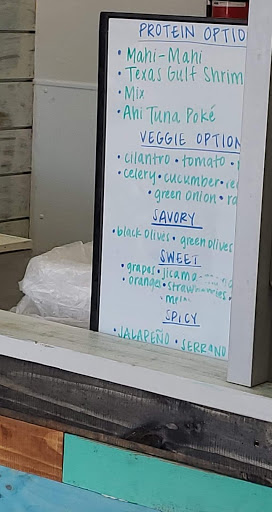 PROTEIN OPTIO
• Mahi-Mahi
• Texas Gulf Shrim
• Mix
• Ahi Tuna Poké
VEGGIE OPTION
• cilantro • tomato •
• celery • cucumber • re
• green onion • ra
SAVORY
• black olives • green olives
SWEET
• grapes • jicama
• orange • strawberries •
SPICY
• JALAPEÑO • SERRANO